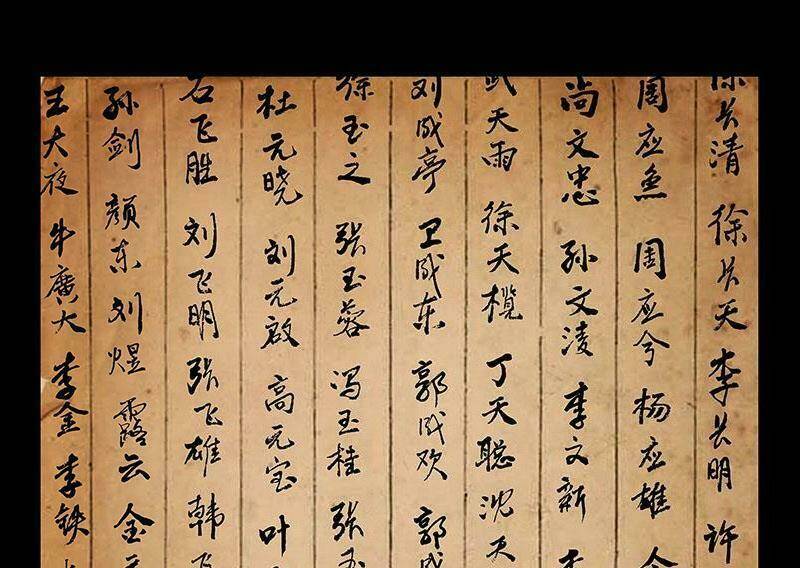 长清 徐长天 李长明 许
周应鱼 周应兮 杨应雄
尚文忠 孙文凌 李文新
武天雨 徐天榄 丁天聪 沈天
刘成亭 卫成东 郭成欢 郭成
徐玉之 张玉蓉 冯玉桂 张玉
杜元晓 刘元啟 高元宝 叶
石飞胜 刘飞明 张飞雄 韩飞
孙剑 颜东 刘煜 露云 金
王大夜 牛廣大 李金 李铁